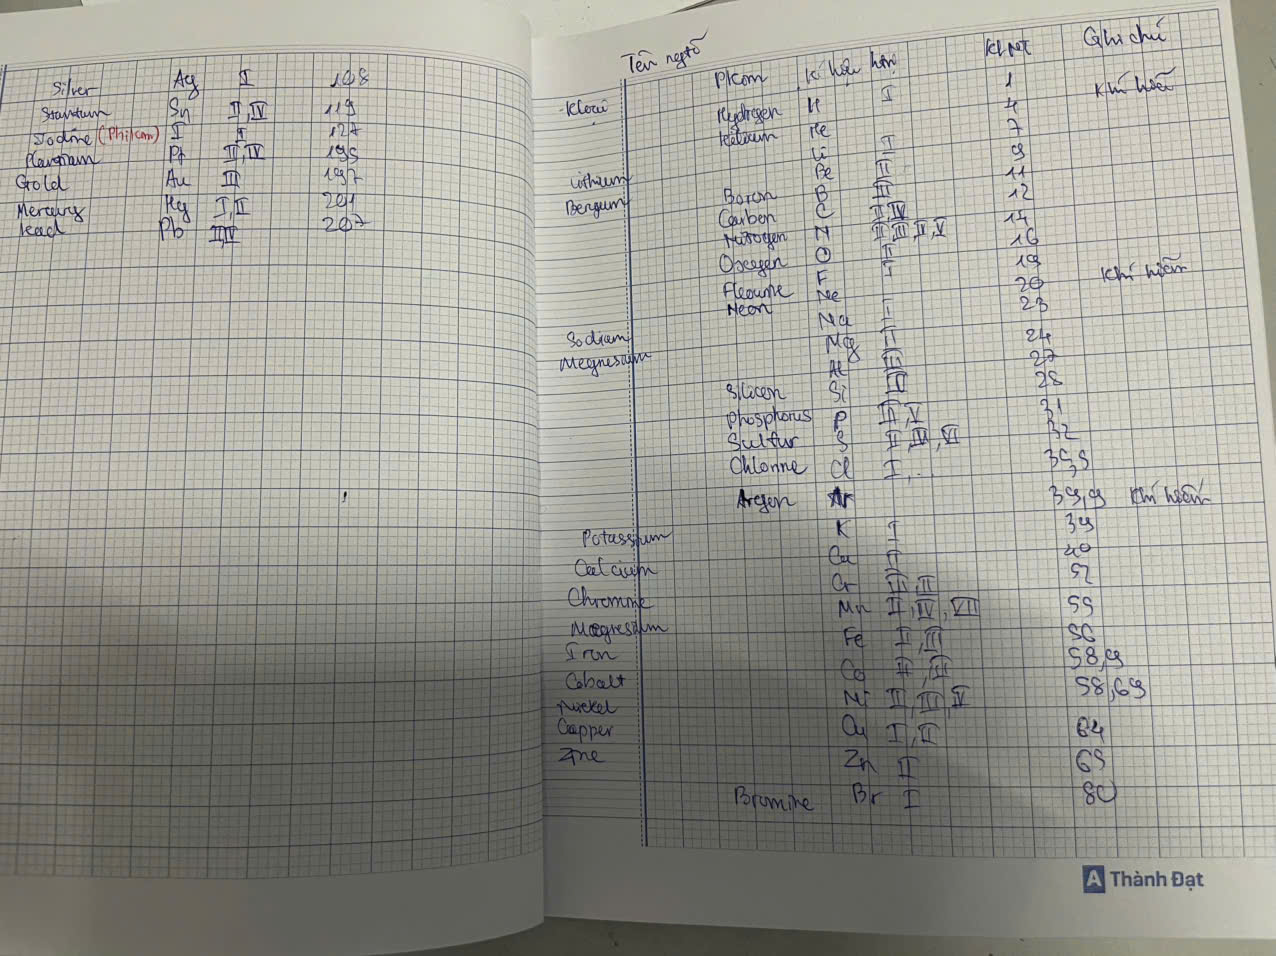 Silver Ag I 108
Stantum Sn II, IV 119
Iodine (Phi kim) I I 127
Plantium Pt II, IV 195
Gold Au III 197
Mercury Hg I, II 201
Lead Pb II, IV 207
Tên ngtố KLNT Ghi chú
Kloai Pkim Kí hiệu hóa
Hydrogen H I 1
Helium He 4 Khí hiếm
Lithium Li I 7
Beryum Be II 9
Boron B III 11
Carben C II, IV 12
Nitrogen N II, III, IV, V 14
Oxegen O II 16
Fleourine F I 19
Neon Ne 20 Khí hiếm
Sodium Na I 23
Megnesium Mg II 24
Al III 27
Silicon Si IV 28
Phosphorus P III, V 31
Sulfur S II, IV, VI 32
Chlorine Cl I, 35,5
Argen Ar 39,9 Khí hiếm
Potassium K I 39
Calcium Ca II 40
Chromine Cr III, II 52
Magnesium Mn II, IV, VII 55
Iron Fe II, III 56
Cobalt Co II, III 58,9
Nickel Ni II, III, IV 58,69
Copper Cu I, II 64
Zine Zn II 65
Bromine Br I 80
Thành Đạt